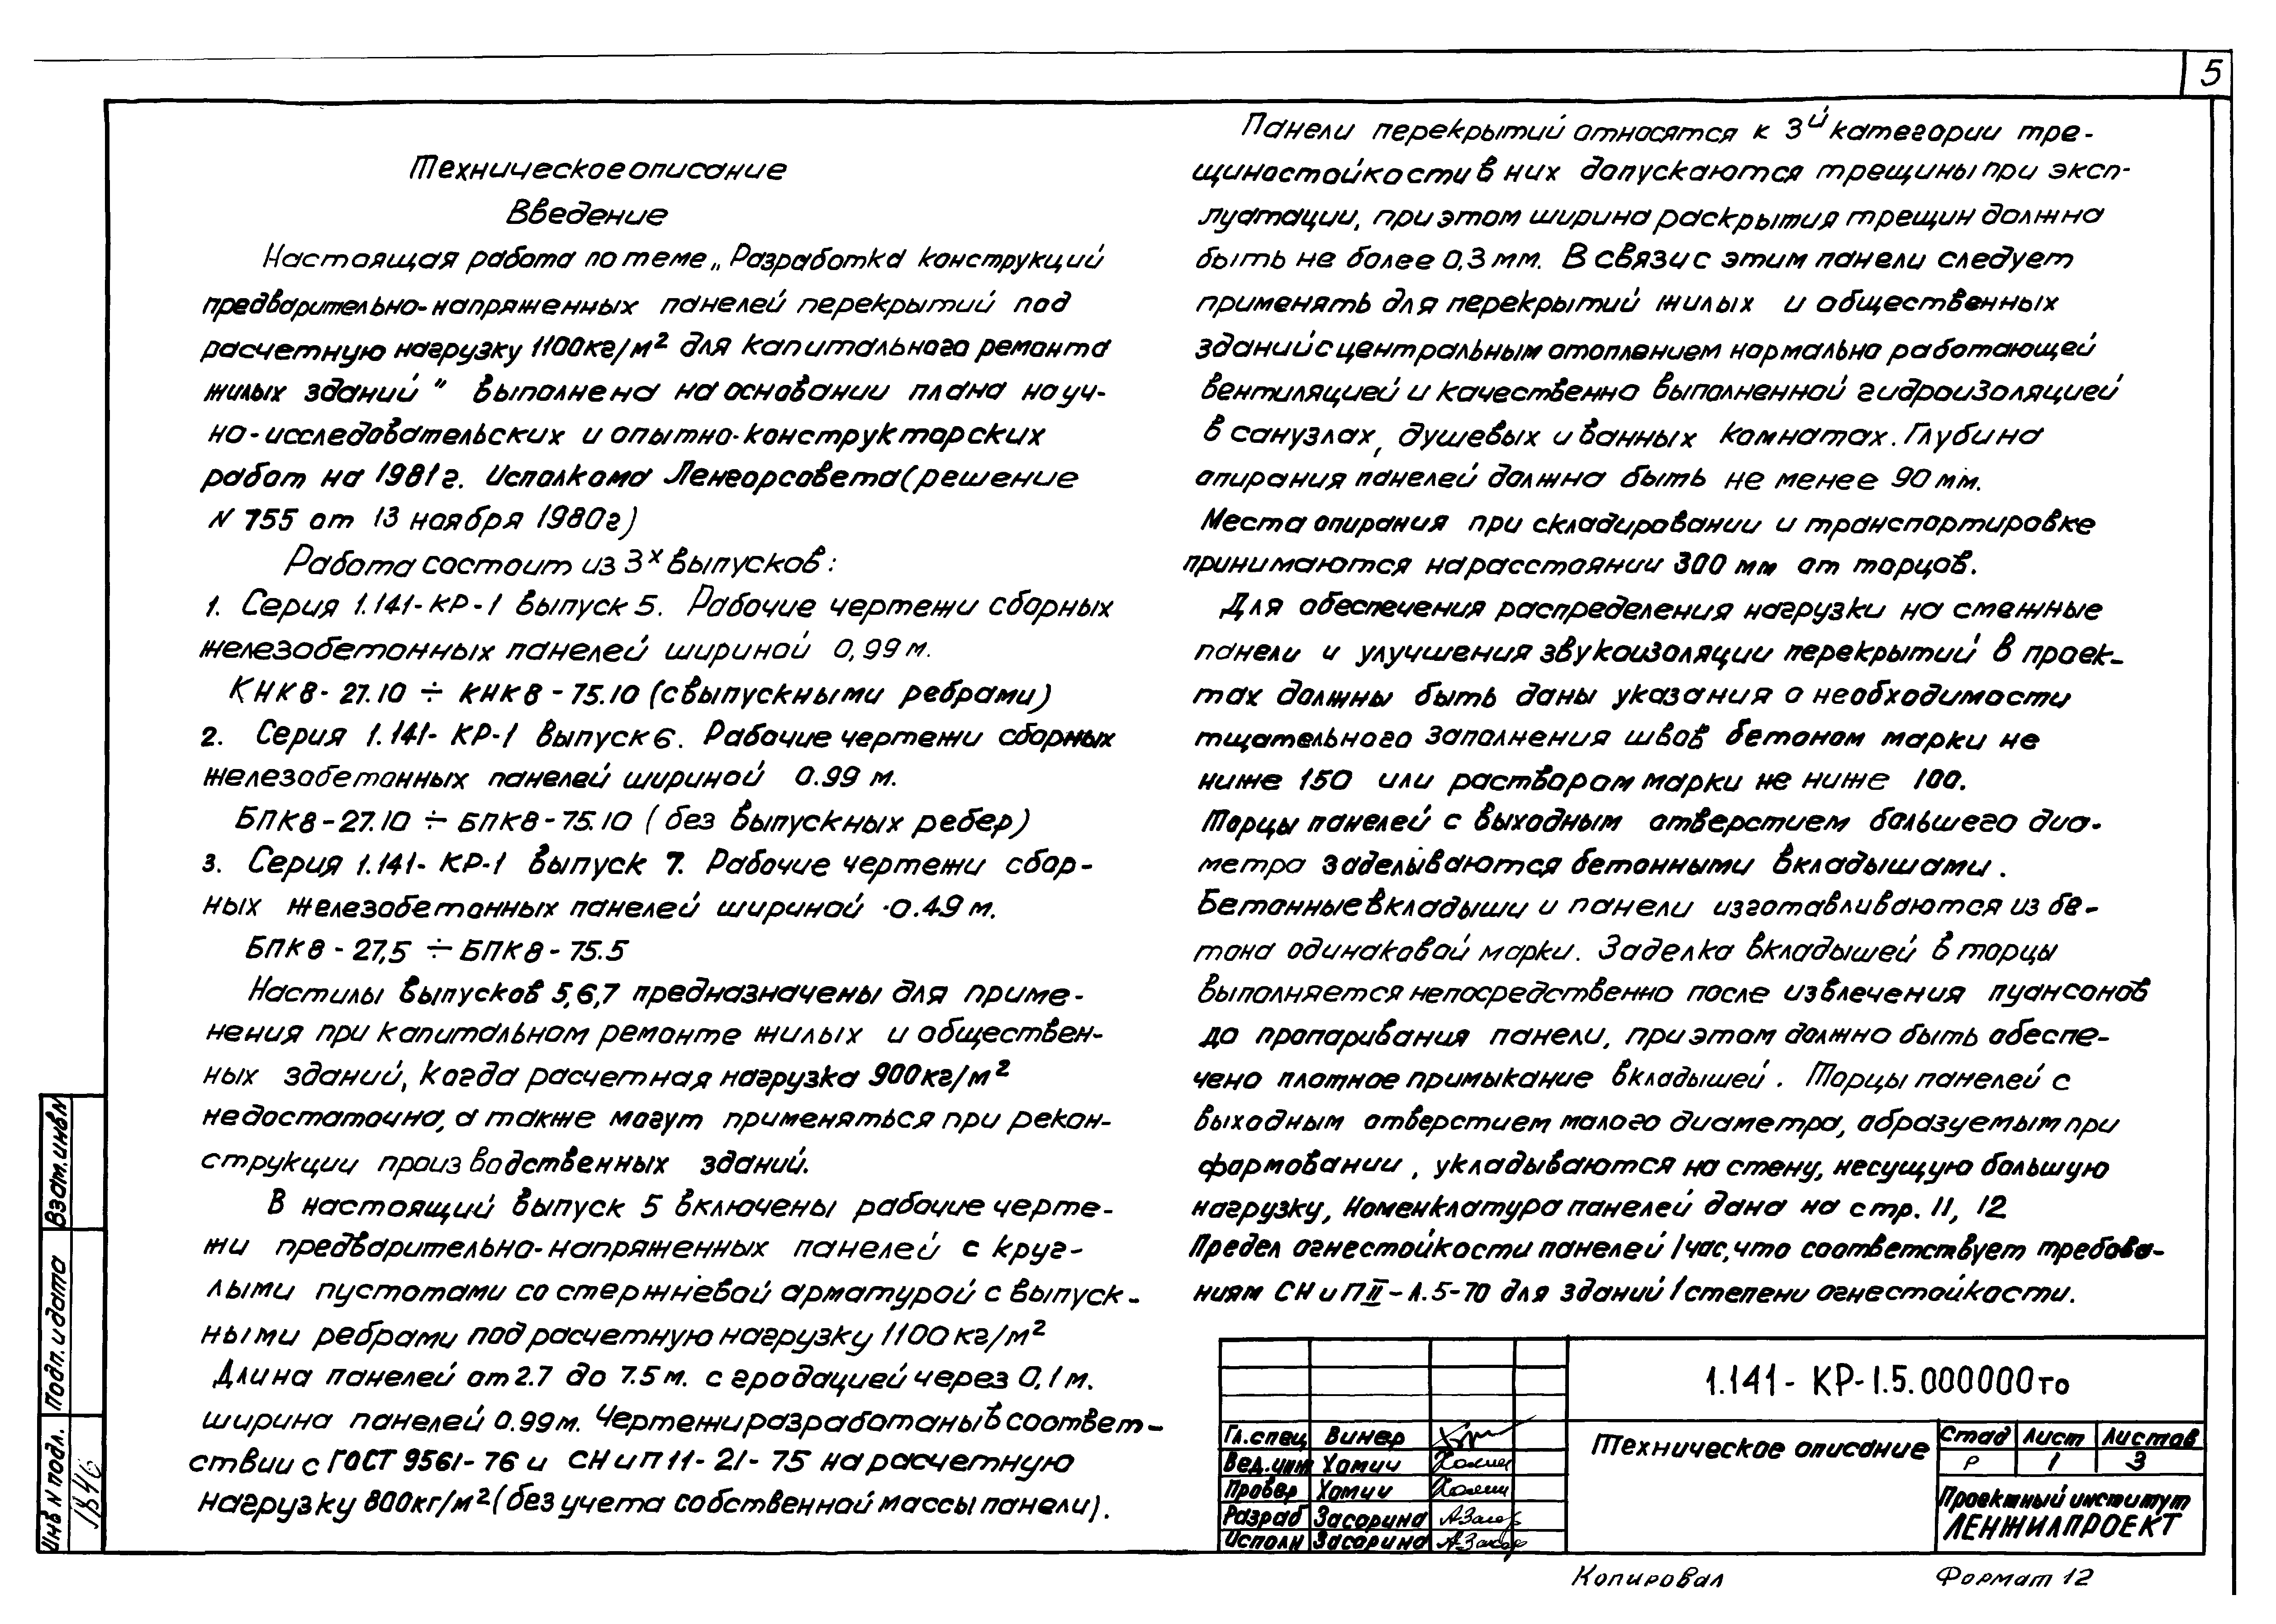 5
Техническое описание
Введение
Настоящая работа по теме „Разработка конструкций
предварительно-напряженных панелей перекрытий под
расчетную нагрузку 1100кг/м² для капитального ремонта
жилых зданий" выполнена на основании плана науч-
но-исследовательских и опытно-конструкторских
работ на 1981г. Исполкома Ленгорсовета (решение
N 755 от 13 ноября 1980г)
Работа состоит из 3х выпусков:
1. Серия 1.141-КР-1 выпуск 5. Рабочие чертежи сборных
железобетонных панелей шириной 0,99м.
КНК8-27.10 ÷ КНК8-75.10 (с выпускными ребрами)
2. Серия 1.141-КР-1 выпуск 6. Рабочие чертежи сборных
железобетонных панелей шириной 0.99 м.
БПК8-27.10 ÷ БПК8-75.10 (без выпускных ребер)
3. Серия 1.141-КР-1 выпуск 7. Рабочие чертежи сбор-
ных железобетонных панелей шириной 0.49 м.
БПК8-27,5 ÷ БПК8-75.5
Настилы выпусков 5,6,7 предназначены для приме-
нения при капитальном ремонте жилых и обществен-
ных зданий, когда расчетная нагрузка 900кг/м²
недостаточна, а также могут применяться при рекон-
струкции производственных зданий.
В настоящий выпуск 5 включены рабочие черте-
жи предварительно-напряженных панелей с круг-
лыми пустотами со стержневой арматурой с выпуск-
ными ребрами под расчетную нагрузку 1100кг/м²
Длина панелей от 2.7 до 7.5м. с градацией через 0,1м.
ширина панелей 0.99м. Чертежи разработаны в соответ-
ствии с ГОСТ 9561-76 и СНиП 11-21-75 на расчетную
нагрузку 800кг/м² (без учета собственной массы панели).
Панели перекрытий относятся к 3й категории тре-
щиностойкости в них допускаются трещины при эксп-
луатации, при этом ширина раскрытия трещин должна
быть не более 0,3 мм. В связи с этим панели следует
применять для перекрытий жилых и общественных
зданий с центральным отоплением нормально работающей
вентиляцией и качественно выполненной гидроизоляцией
в санузлах, душевых и ванных комнатах. Глубина
опирания панелей должна быть не менее 90 мм.
Места опирания при складировании и транспортировке
принимаются на расстоянии 300 мм от торцов.
Для обеспечения распределения нагрузки на смежные
панели и улучшения звукоизоляции перекрытий в проек-
тах должны быть даны указания о необходимости
тщательного заполнения швов бетоном марки не
ниже 150 или раствором марки не ниже 100.
Торцы панелей с выходным отверстием большего диа-
метра заделываются бетонными вкладышами.
Бетонные вкладыши и панели изготавливаются из бе-
тона одинаковой марки. Заделка вкладышей в торцы
выполняется непосредственно после извлечения пуансонов
до пропаривания панели, при этом должно быть обеспе-
чено плотное примыкание вкладышей. Торцы панелей с
выходным отверстием малого диаметра, образуемым при
формовании, укладываются на стену, несущую большую
нагрузку, Номенклатура панелей дана на стр. 11, 12
Предел огнестойкости панелей 1 час, что соответствует требова-
ниям СНиП II-А.5-70 для зданий I степени огнестойкости.
Взам.инв.N
Подп. и дата
Инв N подл.
1846
1.141-КР-1.5.000000то
Гл.спец Винер
Вед.инж Хомич
Провер Хомич
Разраб Засорина
Исполн Засорина
Техническое описание
Стад Лист Листов
Р 1 3
Проектный институт
ЛЕНЖИЛПРОЕКТ
Копировал Формат 12